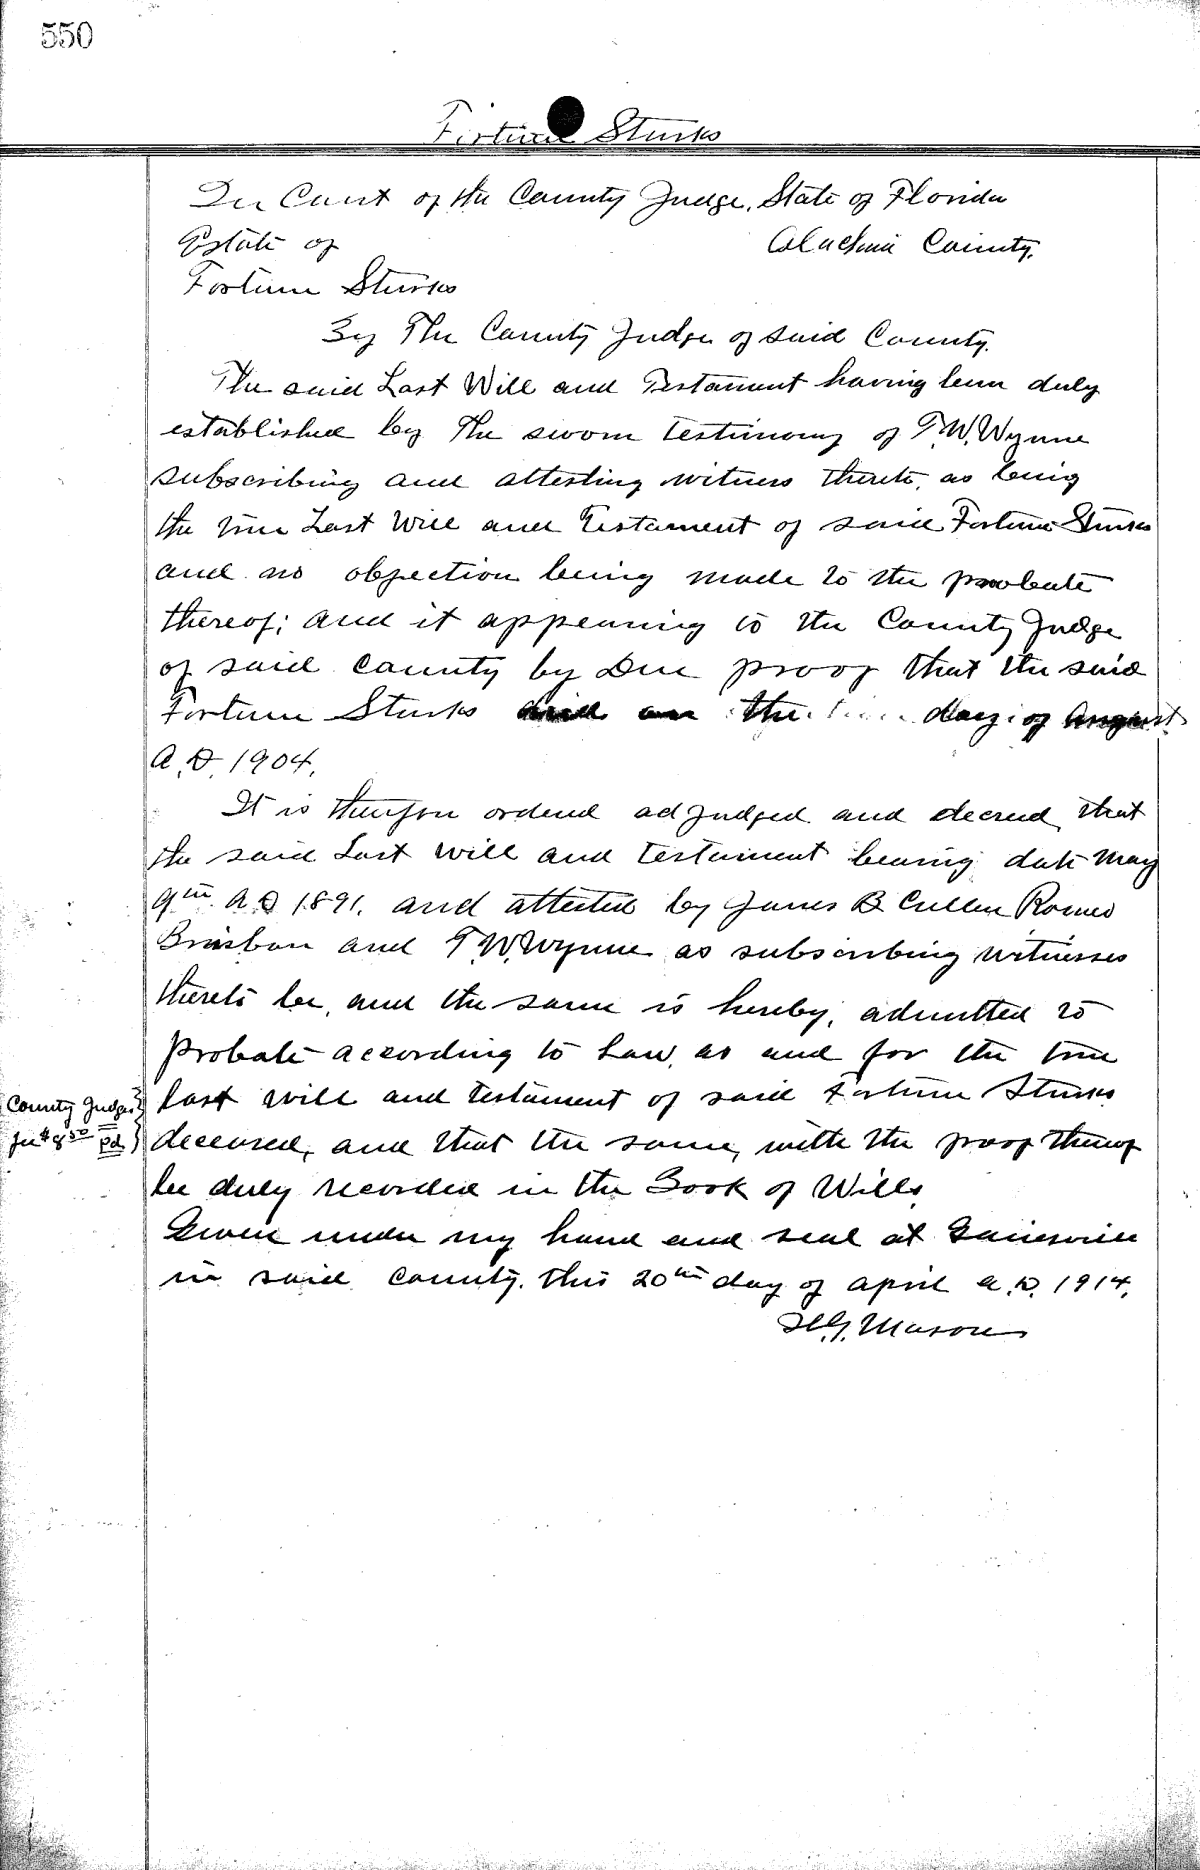 550
Fortune Sturks
In Court of the County Judge, State of Florida
Estate of Alachua County.
Fortune Sturks
By The County Judge of said County.
The said Last Will and Testament having been duly
established by the sworn testimony of T.W. Wynne
subscribing and attesting witness thereto, as being
the true Last Will and Testament of said Fortune Sturks
and no objection being made to the probate
thereof; and it appearing to the County Judge
of said county by Due proof that the said
Fortune Sturks died on the day of August
A.D. 1904.
It is therefore ordered adjudged and decreed, that
the said Last Will and testament bearing date May
9th A.D 1891, and attested by James B Cullen Romeo
Brisbon and T.W. Wynne as subscribing witnesses
thereto be, and the same is hereby, admitted to
Probate according to Law, as and for the true
last will and testament of said Fortune Sturks
County Judges
deceased, and that the same, with the proof thereof
fee $8.50 pd
be duly recorded in the Book of Wills.
Given under my hand and seal at Gainesville
in said county. this 20th day of April A.D. 1914.
H.G. Mason